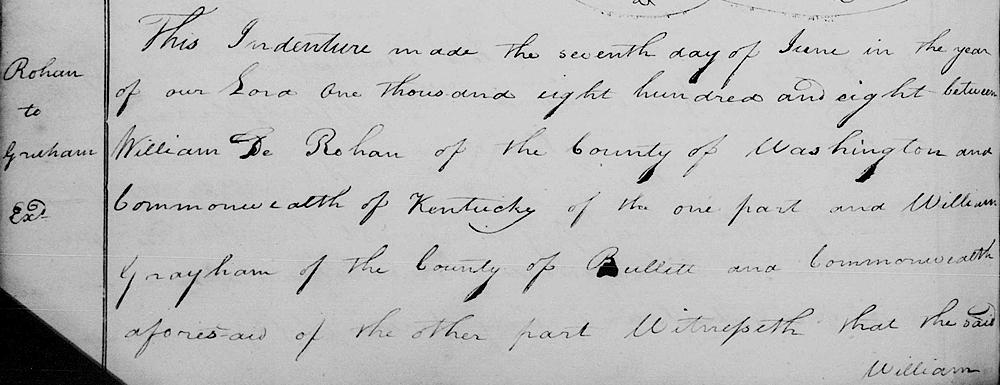 This Indenture made the seventh day of June in the year
of our Lord One thousand eight hundred and eight between
William De Rohan of the County of Washington and
Commonwealth of Kentucky of the one part and William
Grayham of the County of Bullett and Commonwealth
aforesaid of the other part Witnesseth that the said
William
Rohan
to
Graham
Exd